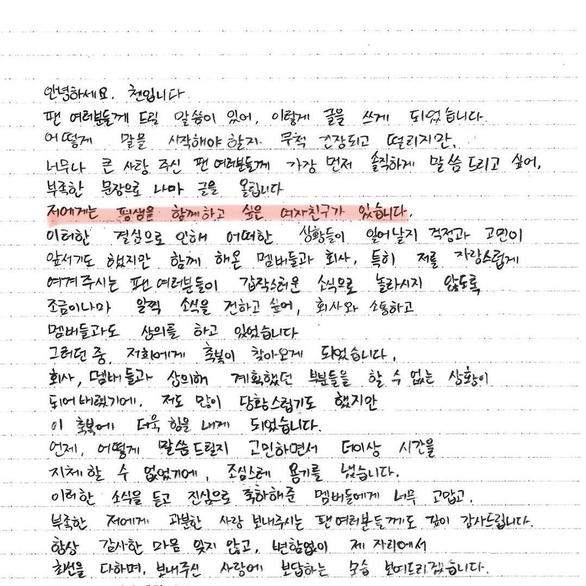 안녕하세요. 첸입니다
팬 여러분들께 드릴 말씀이 있어, 이렇게 글을 쓰게 되었습니다.
어떻게 말을 시작해야 할지 무척 긴장되고 떨리지만,
너무나 큰 사랑 주신 팬 여러분들께 가장 먼저 솔직하게 말씀드리고 싶어,
부족한 문장으로 나마 글을 올립니다
저에게는 평생을 함께하고 싶은 여자친구가 있습니다.
이러한 결심으로 인해 어떠한 상황들이 일어날지 걱정과 고민이
앞서기도 했지만 함께 해온 멤버들과 회사, 특히 저를 자랑스럽게
여겨주시는 팬 여러분들이 갑작스러운 소식으로 놀라시지 않도록
조금이나마 일찍 소식을 전하고 싶어, 회사와 소통하고
멤버들과도 상의를 하고 있었습니다
그러던 중, 저희에게 축복이 찾아오게 되었습니다.
회사, 멤버들과 상의해 계획했던 부분들을 할 수 없는 상황이
되어버렸기에, 저도 많이 당황스럽기도 했지만
이 축복에 더욱 힘을 내게 되었습니다.
언제, 어떻게 말씀드릴지 고민하면서 더이상 시간을
지체할 수 없었기에, 조심스레 용기를 냈습니다.
이러한 소식을 듣고 진심으로 축하해준 멤버들에게 너무 고맙고,
부족한 저에게 과분한 사랑 보내주시는 팬 여러분들께도 깊이 감사드립니다.
항상 감사한 마음 잊지 않고, 변함없이 제 자리에서
최선을 다하며, 보내주신 사랑에 보답하는 모습 보여드리겠습니다.